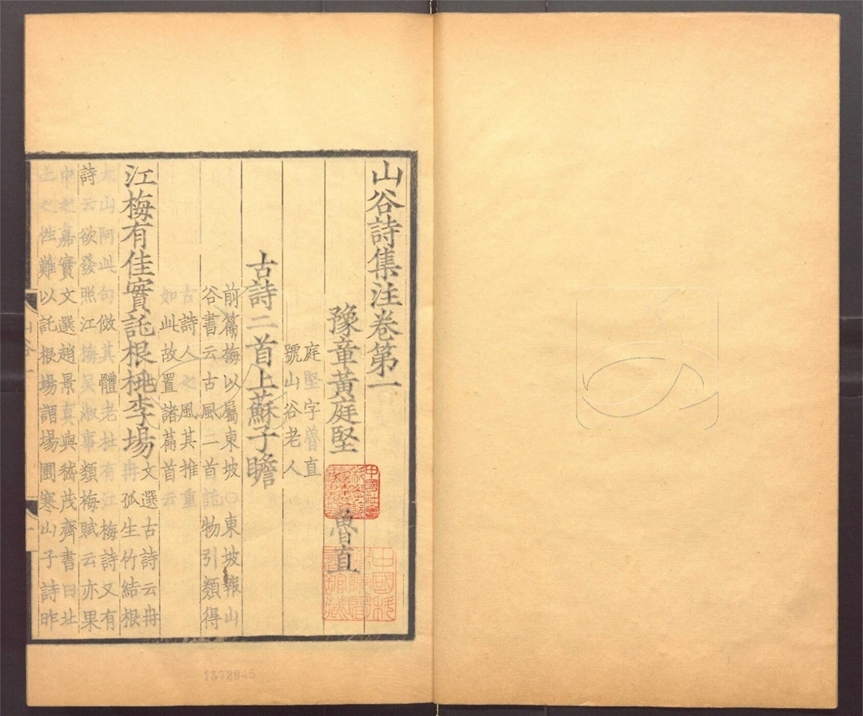 山谷詩集注卷第一
豫章黃庭堅 魯直
庭堅字魯直
號山谷老人
古詩二首上蘇子瞻
前篇梅以屬東坡○東坡報山
谷書云古風二首託物引類得
古詩人之風其推重
如此故置諸篇首云
江梅有佳實託根桃李場
文選古詩云冉
冉孤生竹結根
太山阿此句倣其體老杜有江梅詩又有
詩云欲發照江梅吳淑事類梅賦云亦果
中之嘉實文選趙景真與嵇茂齊書曰北
土之性難以託根場謂場圃寒山子詩昨
山谷一
一
1572945